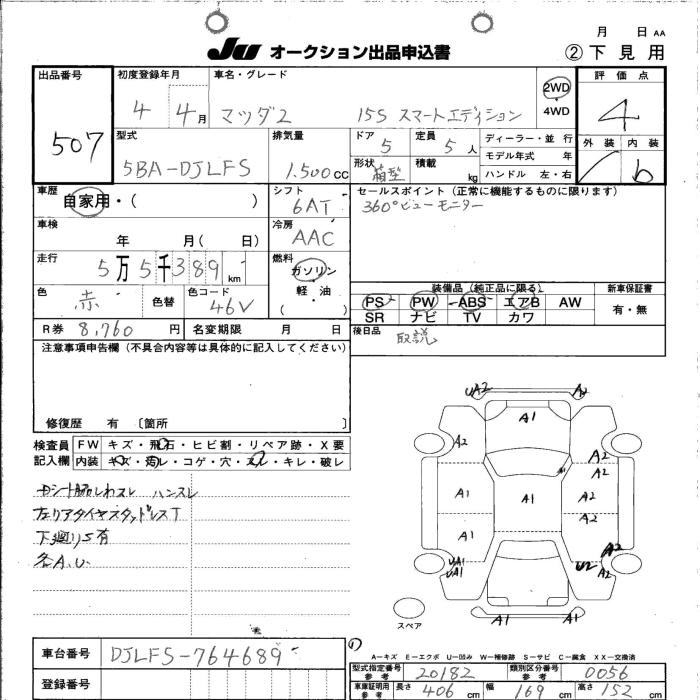 月 日 AA
JU オークション出品申込書 ②下見用
出品番号 初度登録年月 車名・グレード 評価点
507 4 4月 マツダ2 15S スマートエディション 2WD 4WD 4
型式 排気量 ドア 定員 ディーラー・並行 外装 内装
5BA-DJLFS 1.500cc 5 5人 モデル年式 年 b
形状 箱型 積載 kg ハンドル 左・右
車歴 自家用・( ) シフト 6AT セールスポイント(正常に機能するものに限ります)
360°ビューモニター
車検 年 月( 日) 冷房 AAC
走行 5万5千389km 燃料 ガソリン 軽・油 ( )
装備品(純正品に限る) 新車保証書
色 赤 色替 色コード 46V
PS PW ABS エアB AW 有・無
SR ナビ TV カワ
R券 8,760円 名変期限 月 日 後日品 取説
注意事項申告欄(不具合内容等は具体的に記入してください)
修復歴 有 〔箇所 〕
検査員 FW キズ・飛石・ヒビ割・リペア跡・X要
記入欄 内装 キズ・汚レ・コゲ・穴・スレ・キレ・破レ
左リアタイヤスタッドレスT
下廻りS有
各A.U.
UA2 A2
A1
A2 A2
A2
A1 A1 A2
A2
A1
UA1 U2 A2
UA1 A2
A1 A1
スペア
A-キズ E-エクボ U-凹み W-補修跡 S-サビ C-腐食 XX-交換済
車台番号 DJLFS-764689
型式指定番号 参考 20182 類別区分番号 参考 0056
登録番号
車庫証明用 参考 長さ 406cm 幅 169cm 高さ 152cm